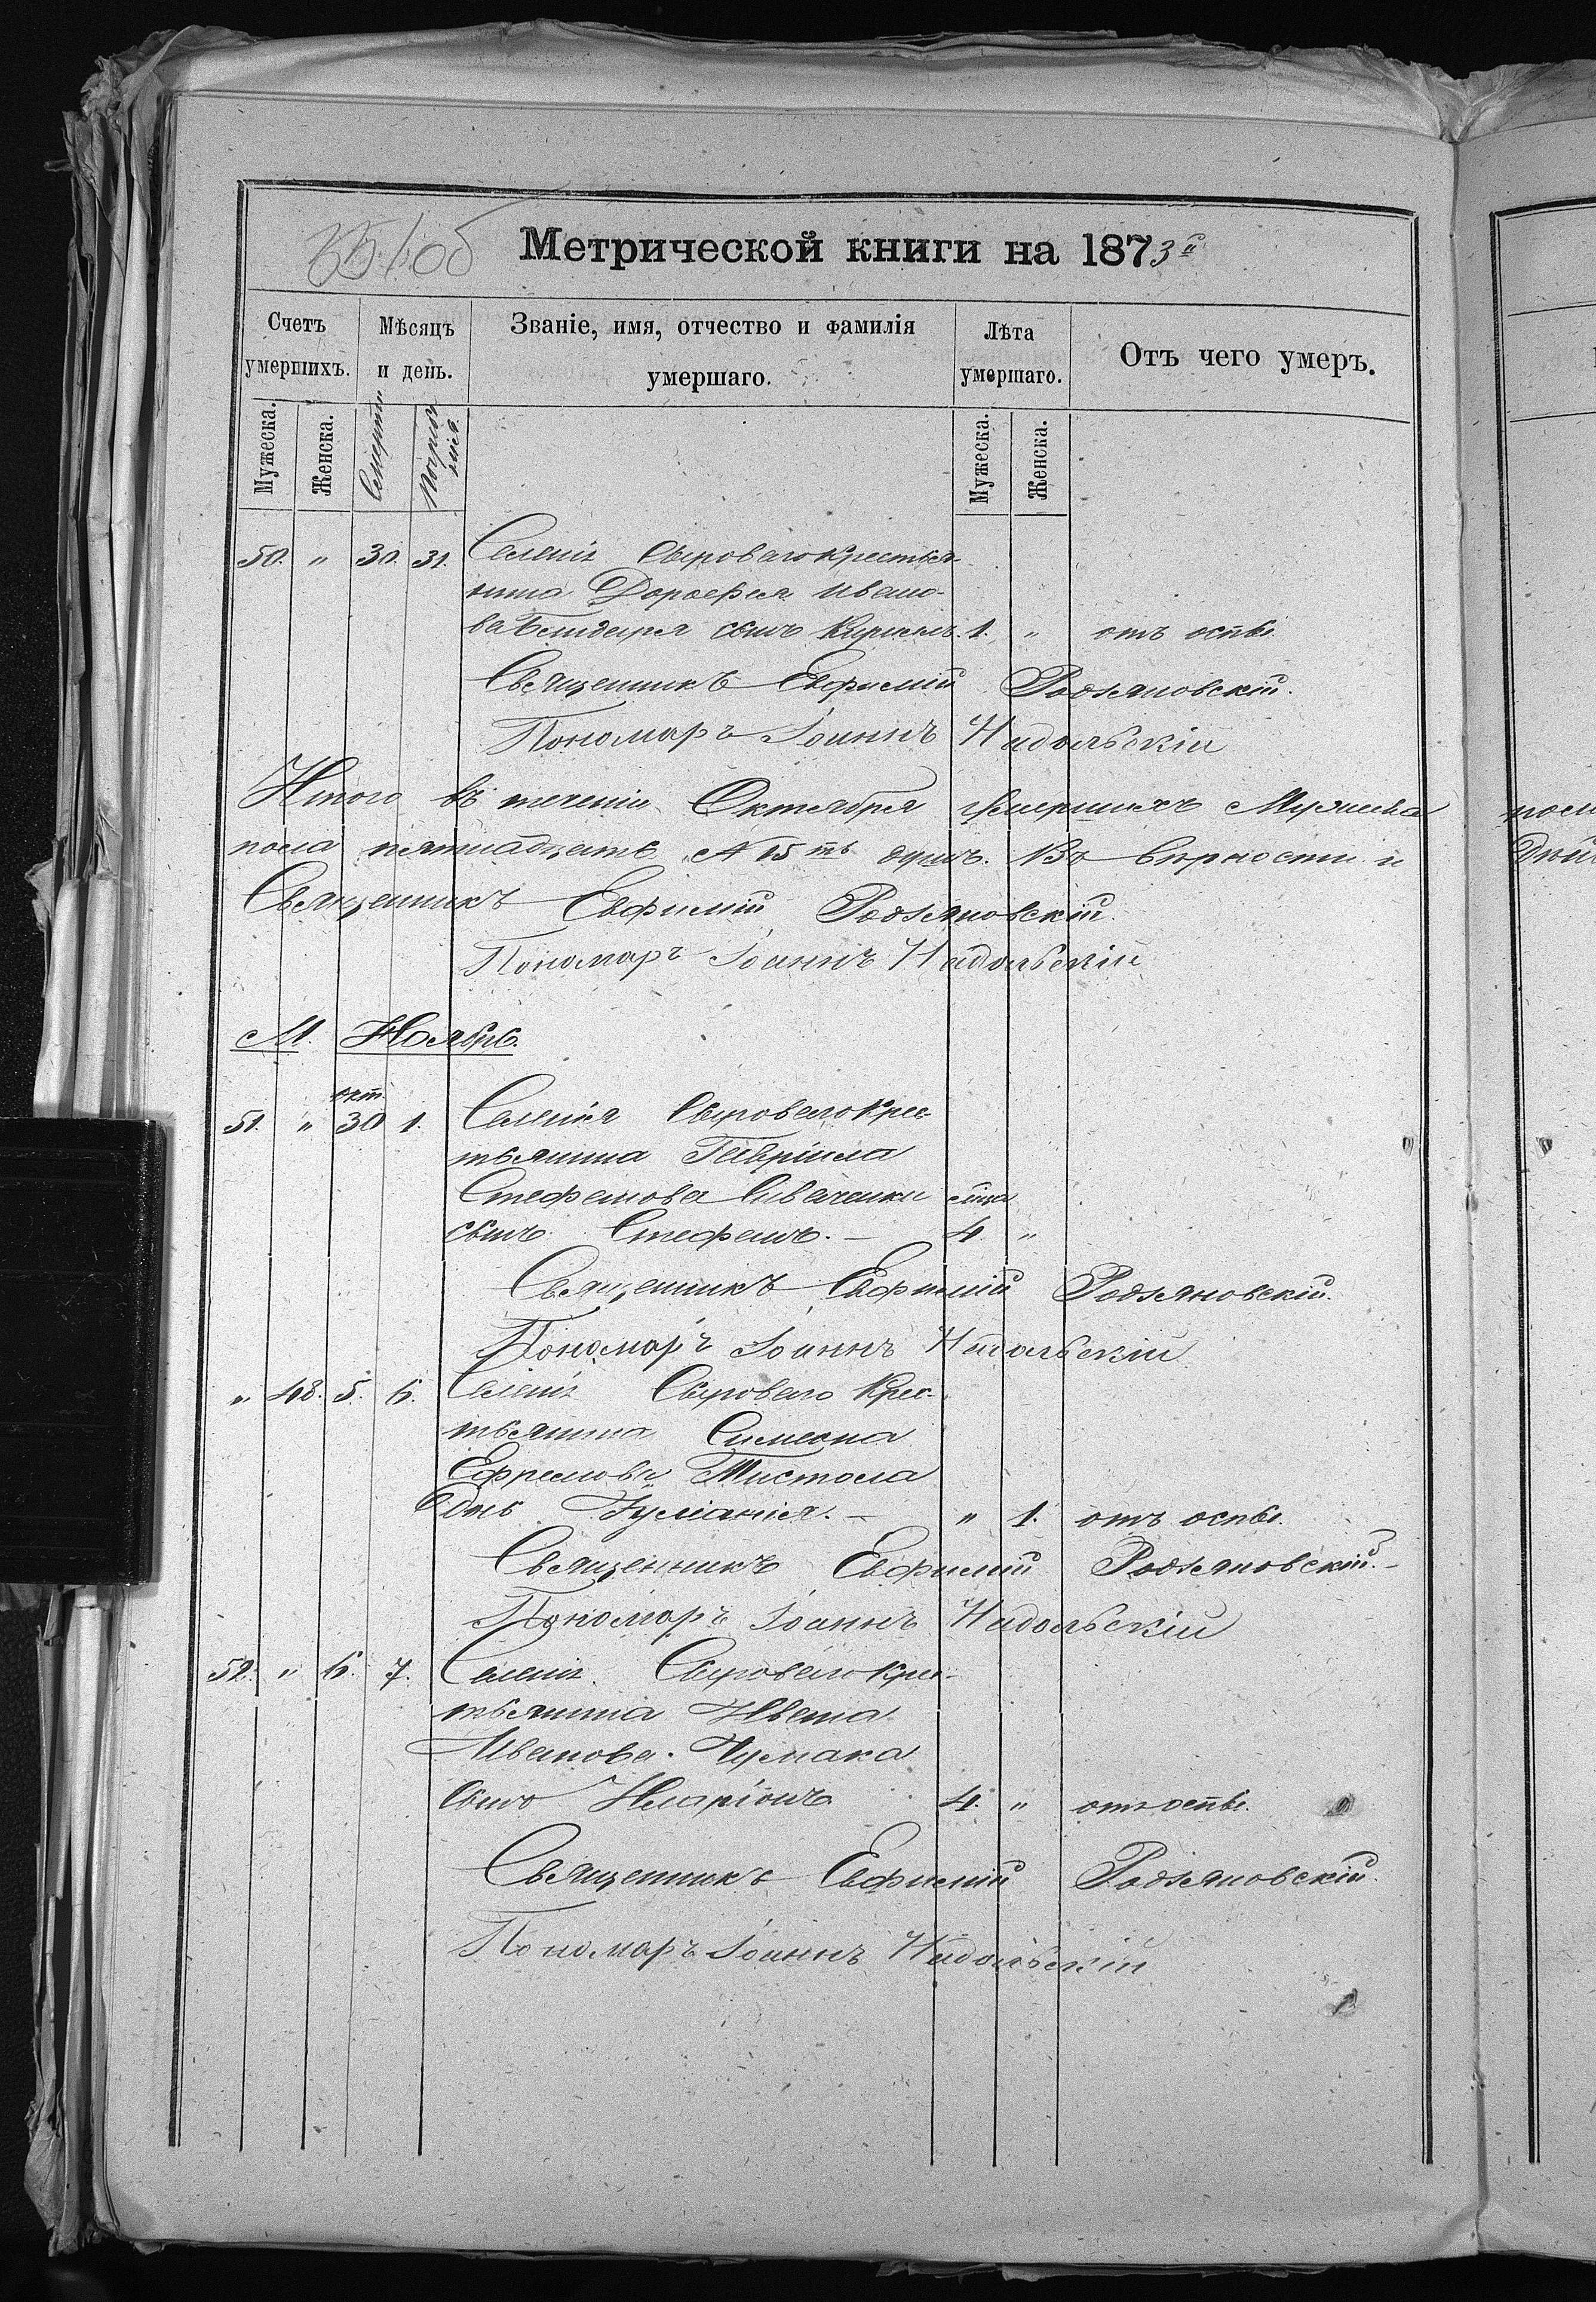 Метрической книги на 1873й
Счетъ умершихъ.
Мѣсяцъ и день.
Званіе, имя, отчество и фамилія умершаго.
Лѣта умершаго.
Отъ чего умеръ.
Мужеска.
Женска.
Смерти
Погребенія.
Мужеска.
Женска.
50. " 30. 31. Селенія Сыроваго крестья-
нина Дорофея Ивано-
ва сынъ Кириллъ. 1. " отъ оспы.
Священникъ Евфимій Родзяновскій.
Пономаръ Іоаннъ Надольскій
Итого въ теченіи Октября умершихъ Мужеска
пола пятнадцать А 15ть душъ. Въ вѣрности и
Священникъ Евфимій Родзяновскій.
Пономаръ Іоаннъ Надольскій
М. Ноябрь.
окт.
51. " 30 1. Селенія Сыроваго крес-
тьянина Гавріила
Стефанова Сиваченки мца
сынъ Стефанъ. — 4. "
Священникъ Евфимій Родзяновскій.
Пономаръ Іоаннъ Надольскій
" 48. 5. 6. Селенія Сыроваго крес-
тьянина Симеона
Ефремова Тистола
дочь Іуліанія. — " 1. отъ оспы.
Священникъ Евфимій Родзяновскій. —
Пономаръ Іоаннъ Надольскій
52. " 6. 7. Селенія Сыроваго крес-
тьянина Ивана
Иванова Чумака
сынъ Иларіонъ 4. " отъ оспы.
Священникъ Евфимій Родзяновскій.
Пономаръ Іоаннъ Надольскій